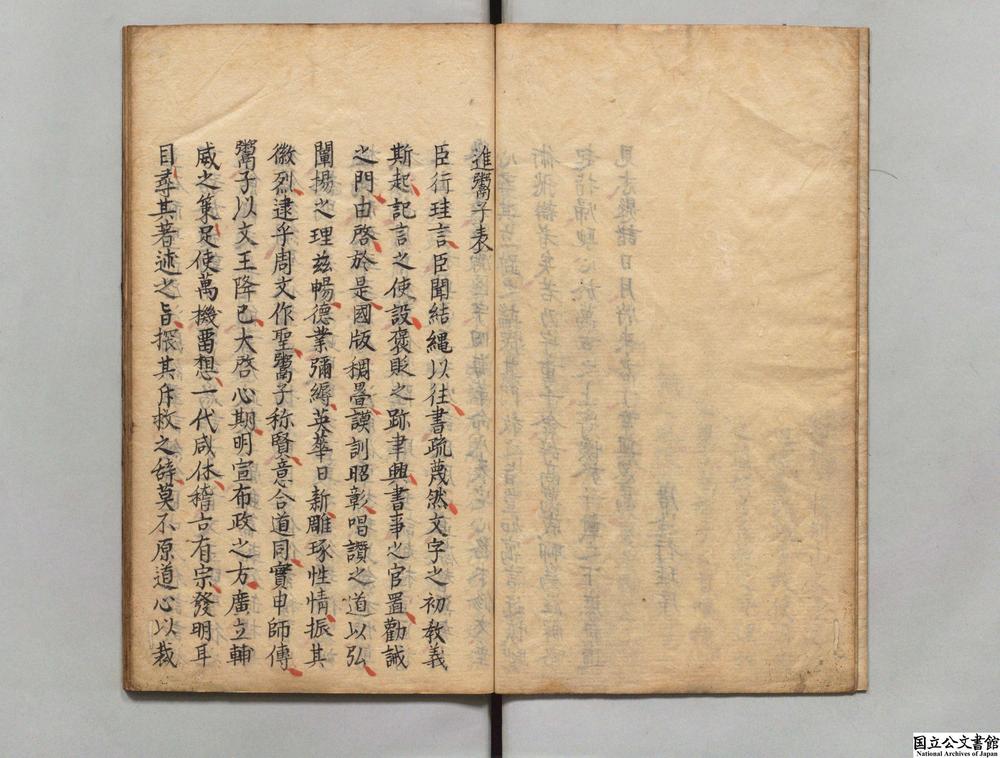 進鬻子表
臣行珪言臣聞結繩以往書疏蔑然文字之初教義
斯起記言之使設褒貶之跡聿興書事之官置勸誡
之門由啓於是國版稠疊謨訓昭彰唱讚之道以弘
闡揚之理茲暢德業彌縟英華日新雕琢性情振其
徽烈逮乎周文作聖鬻子称賢意合道同實申師傳
鬻子以文王降己大啓心期明宣布政之方廣立輔
威之策足使萬機畱想一代咸休稽古有宗發明耳
目尋其著述之旨探其斥救之辞莫不原道心以裁
国立公文書館
National Archives of Japan